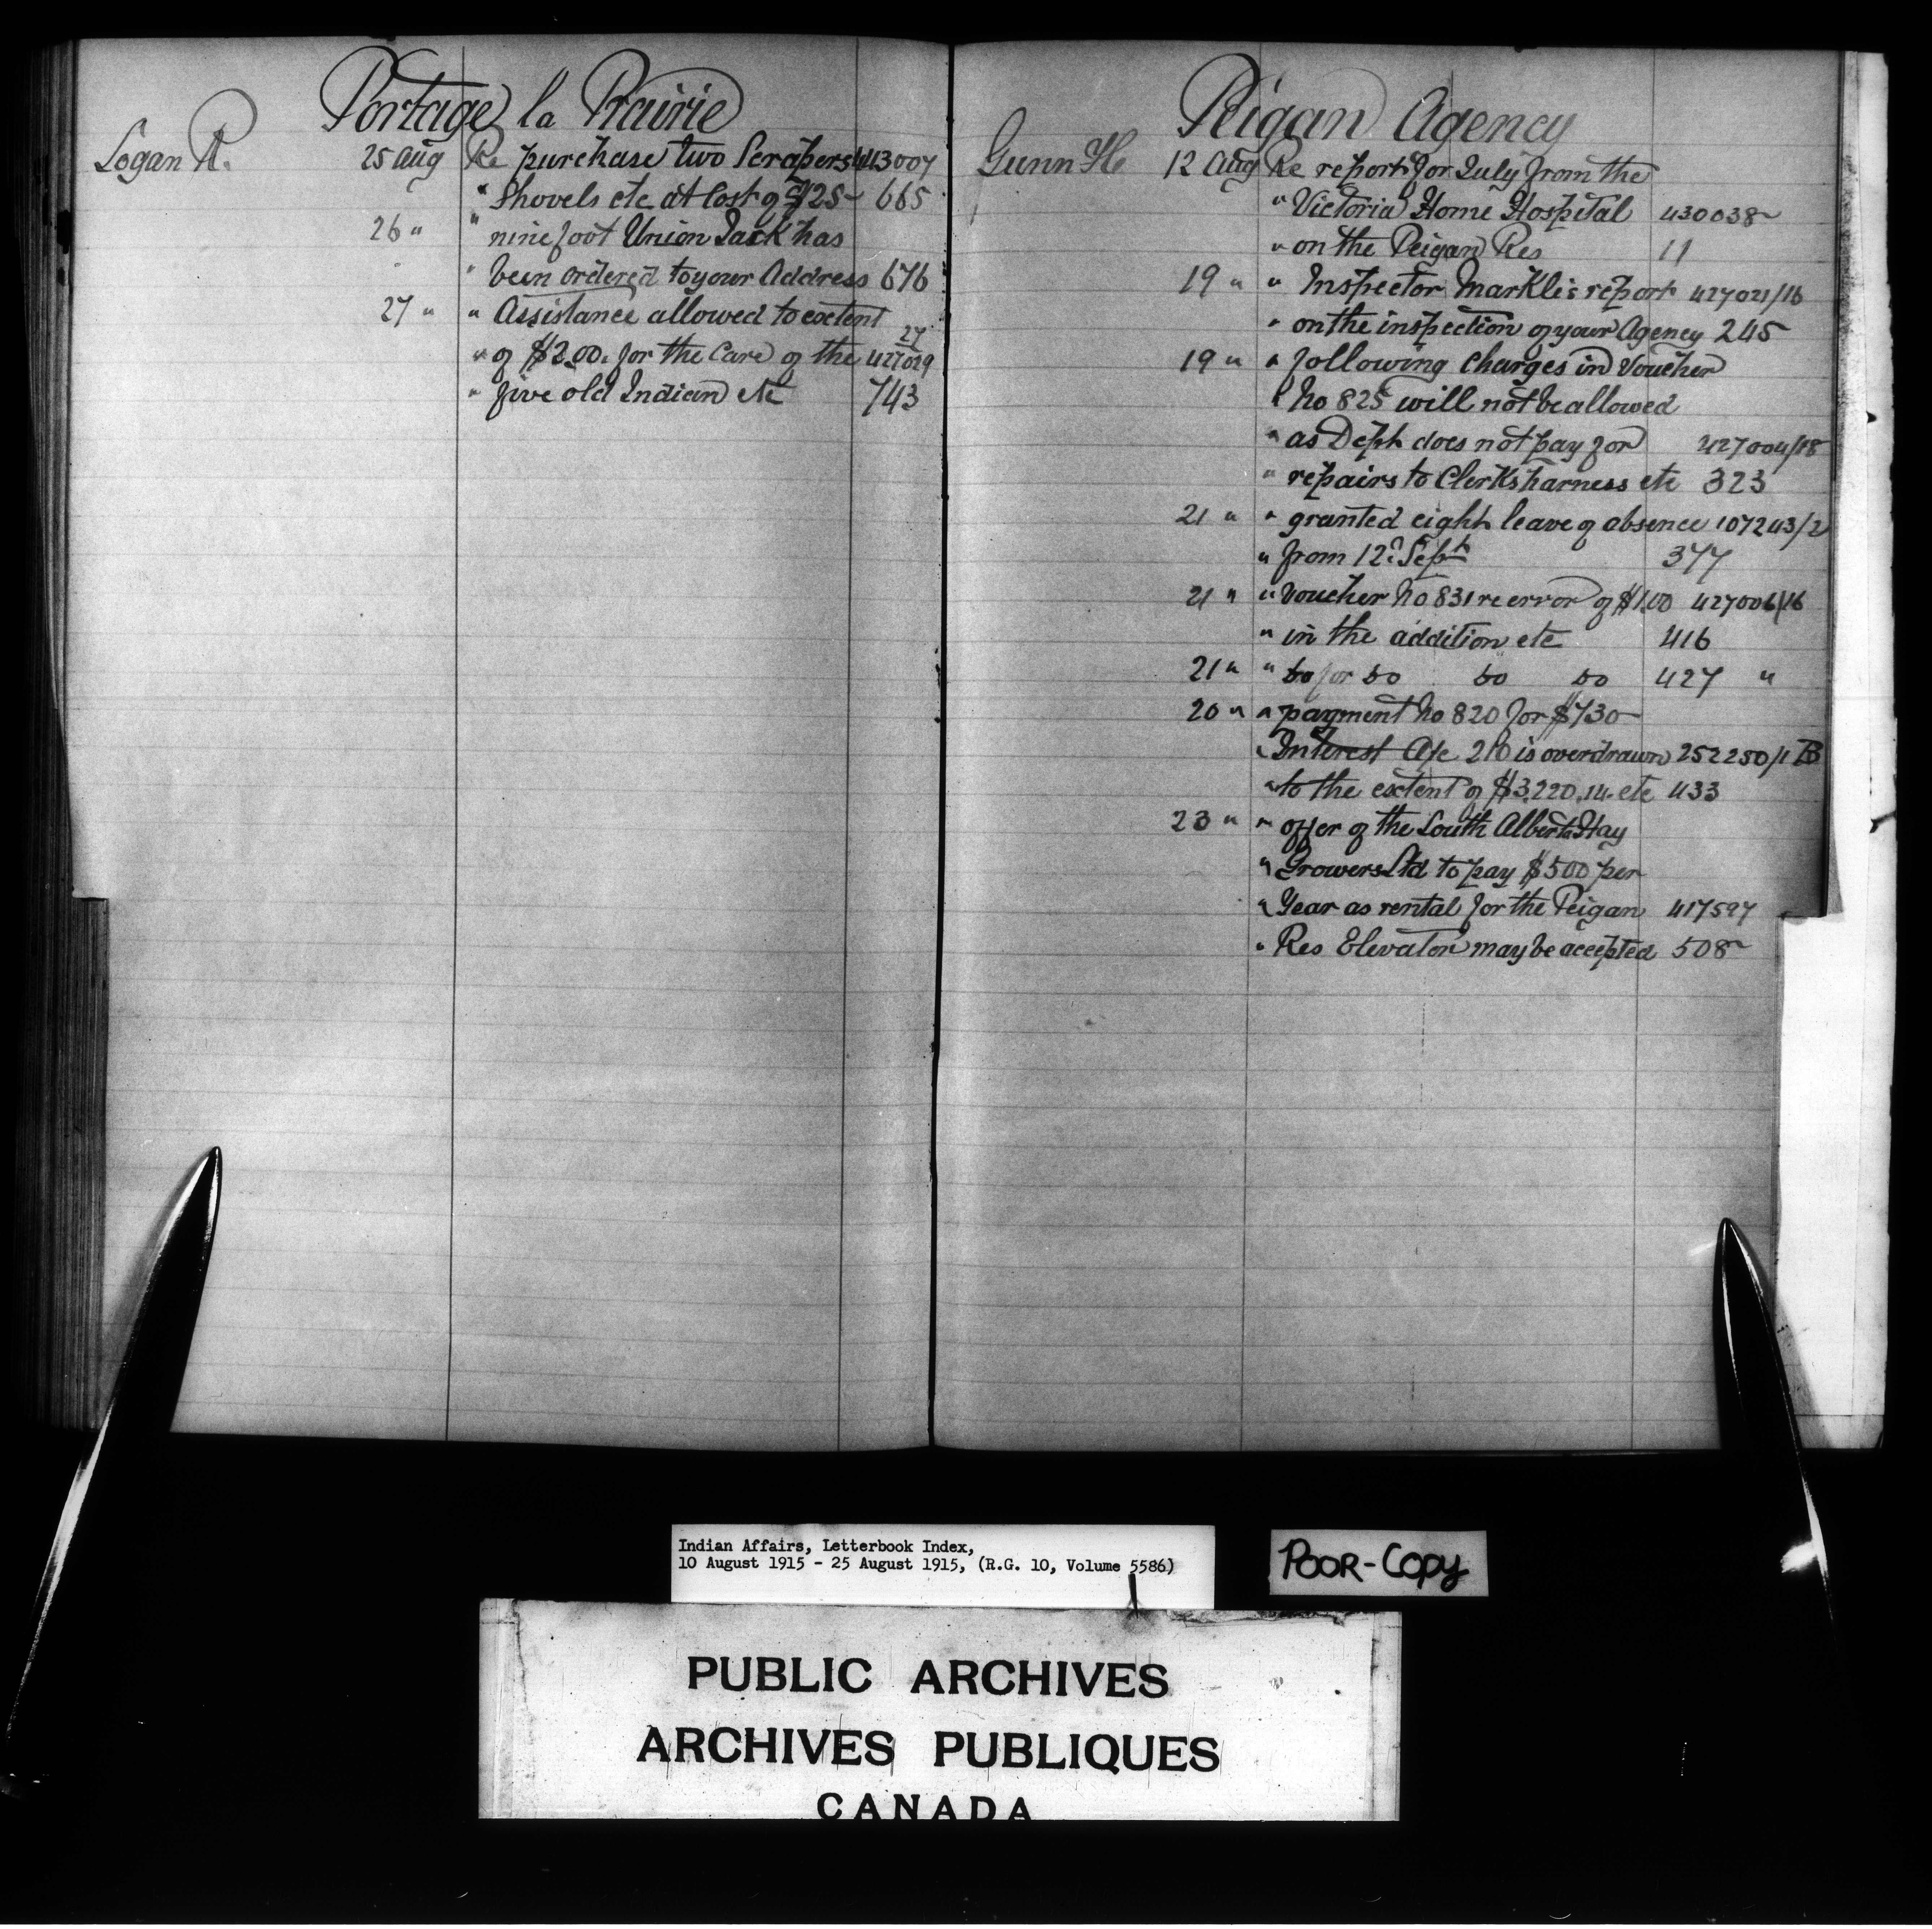 Portage la Prairie
Logan R. 25 Aug Re purchase two Scrapers 413007
" Shovels etc at Cost of $125- 665
26 " " nine foot Union Jack has
" been ordered to your Address 676
27 " " Assistance allowed to extent
" of $2.00. for the Care of the 427029/27
" five old Indian etc 743
Peigan Agency
Gunn H 12 Aug Re report for July from the
" Victoria Home Hospital 430038-
" on the Peigan Res 11
19 " " Inspector Markle's report 427021/16
" on the inspection of your Agency 245
19 " " following Charges in Voucher
" No 825 will not be allowed
" as Dept does not pay for 427004/18
" repairs to Clerks harness etc 323
21 " " granted eight leave of absence 107243/2
" from 12th Sept 377
21 " " Voucher No 831 re error of $1.00 427006/16
" in the addition etc 416
21 " " Do for Do Do Do 427 "
20 " " payment No 820 for $730-
" Interest A/c 210 is overdrawn 252250/1 B
" to the extent of $3,220.14. etc 433
23 " " offer of the South Alberta Hay
" Growers Ltd to pay $500 per
" Year as rental for the Peigan 417597
" Res Elevator may be accepted 508-
Indian Affairs, Letterbook Index,
10 August 1915 - 25 August 1915, (R.G. 10, Volume 5586)
POOR-COPY
PUBLIC ARCHIVES
ARCHIVES PUBLIQUES
CANADA